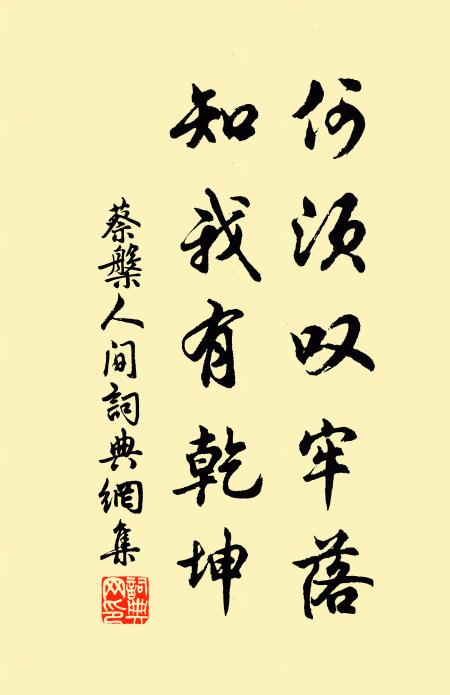 何须叹牢落
知我有乾坤
蔡槃人间詞典網集
詞典網印